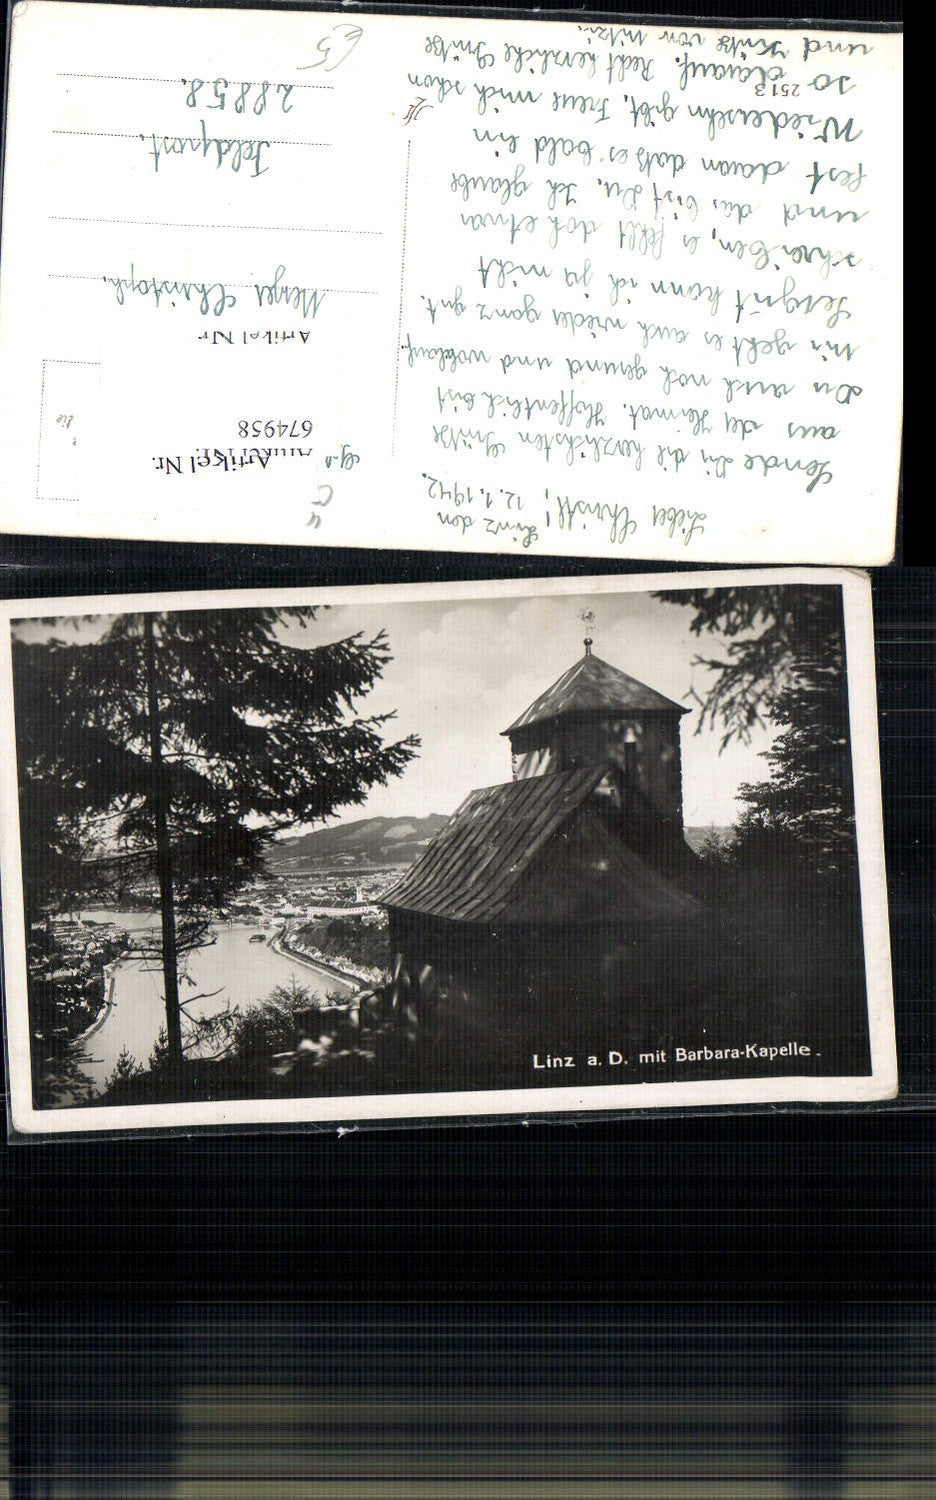 Linz den
12.1.1942.
Lieber Christl!
Sende Dir die herzlichsten Grüße
aus der Heimat. Hoffentlich bist
Du auch noch gesund und wohlauf.
Mir geht es auch wieder ganz gut.
kann ich ja nicht
schreiben, es fehlt doch etwas
und das bist Du. Ich glaube
fest daran daß es bald ein
Wiedersehn gibt. Freue mich schon
so darauf. Recht herzliche Grüße
und Küße von Mitzi.
2513
Christoph.
Feldpost.
28858.
Artikel Nr.
674958
Artikel Nr.
Linz a. D. mit Barbara-Kapelle.